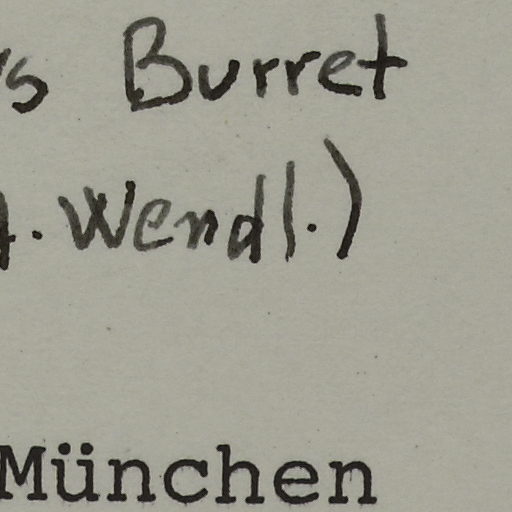 s Burret
. Wendl.)
München